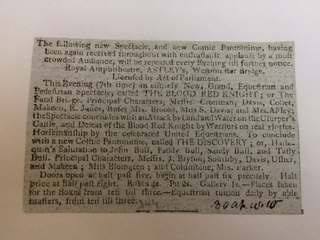 The following new Spectacle, and new Comic Pantomime, having
been again received throughout with enthusiastic applause by a most
crowded Audience, will be repeated every Evening till further notice.
Royal Amphitheatre, ASTLEY's, Westminster Bridge.
Licensed by Act of Parliament.
This Evening (7th time) entirely New, Grand, Equestrian and
Pedestrian Spectacle, called THE BLOOD RED KNIGHT; or The
Fatal Bridge. Principal Characters, Messrs. Crossman, Davis, Collet,
Makeen, R. Jones, Mrs. Miss S. Davis; and Mrs. Astley;
the Spectacle concludes with an Attack by Land and Water on the Usurper's
Castle, and Defeat of the Blood Red Knight by Warriors on real Horses.
Horsemanship by the celebrated United Equestrians. To conclude
with a new Comic Pantomime, called THE DISCOVERY; or, Harle-
quin's Salutation to John Bull, Paddy Bull, Sandy Bull, and Taffy
Bull. Principal Characters, Messrs. J. Bryson, Southby, Davis, Usher,
and Makeen; Miss Bloomgreen; and Columbine, Mrs. Parker.
Doors open at half past five, begin at half past six, precisely. Half
price at half past eight. Boxes 4s. Pit 2s. Gallery 1s.—Places taken
for the Boxes from ten till three.—Equestrian tuition daily by able
masters, from ten till three.